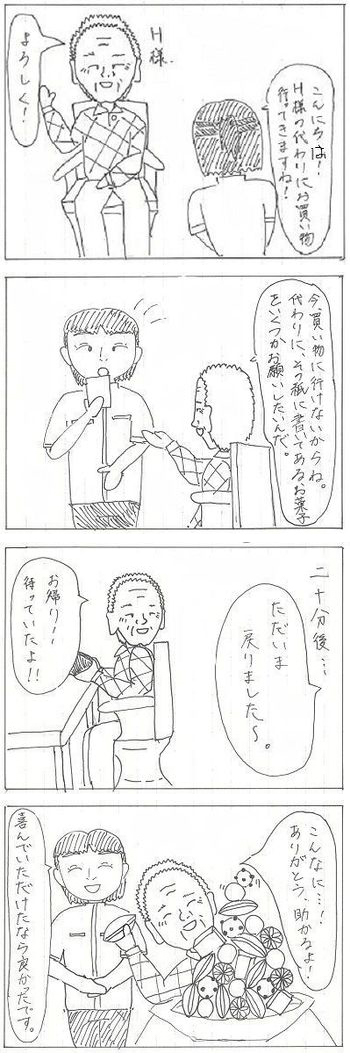 こんにちは!
H様の代わりにお買い物
行てきますね!
H様
よろしく!
今、買い物に行けないからね。
代わりに、その紙に書いてあるお菓子
をいくつかお願いしたいんだ。
二十分後…
ただいま
戻りました～。
お帰り!
待っていたよ!!
こんなに…!
ありがとう、助かるよ!
喜んでいただけたなら良かったです。